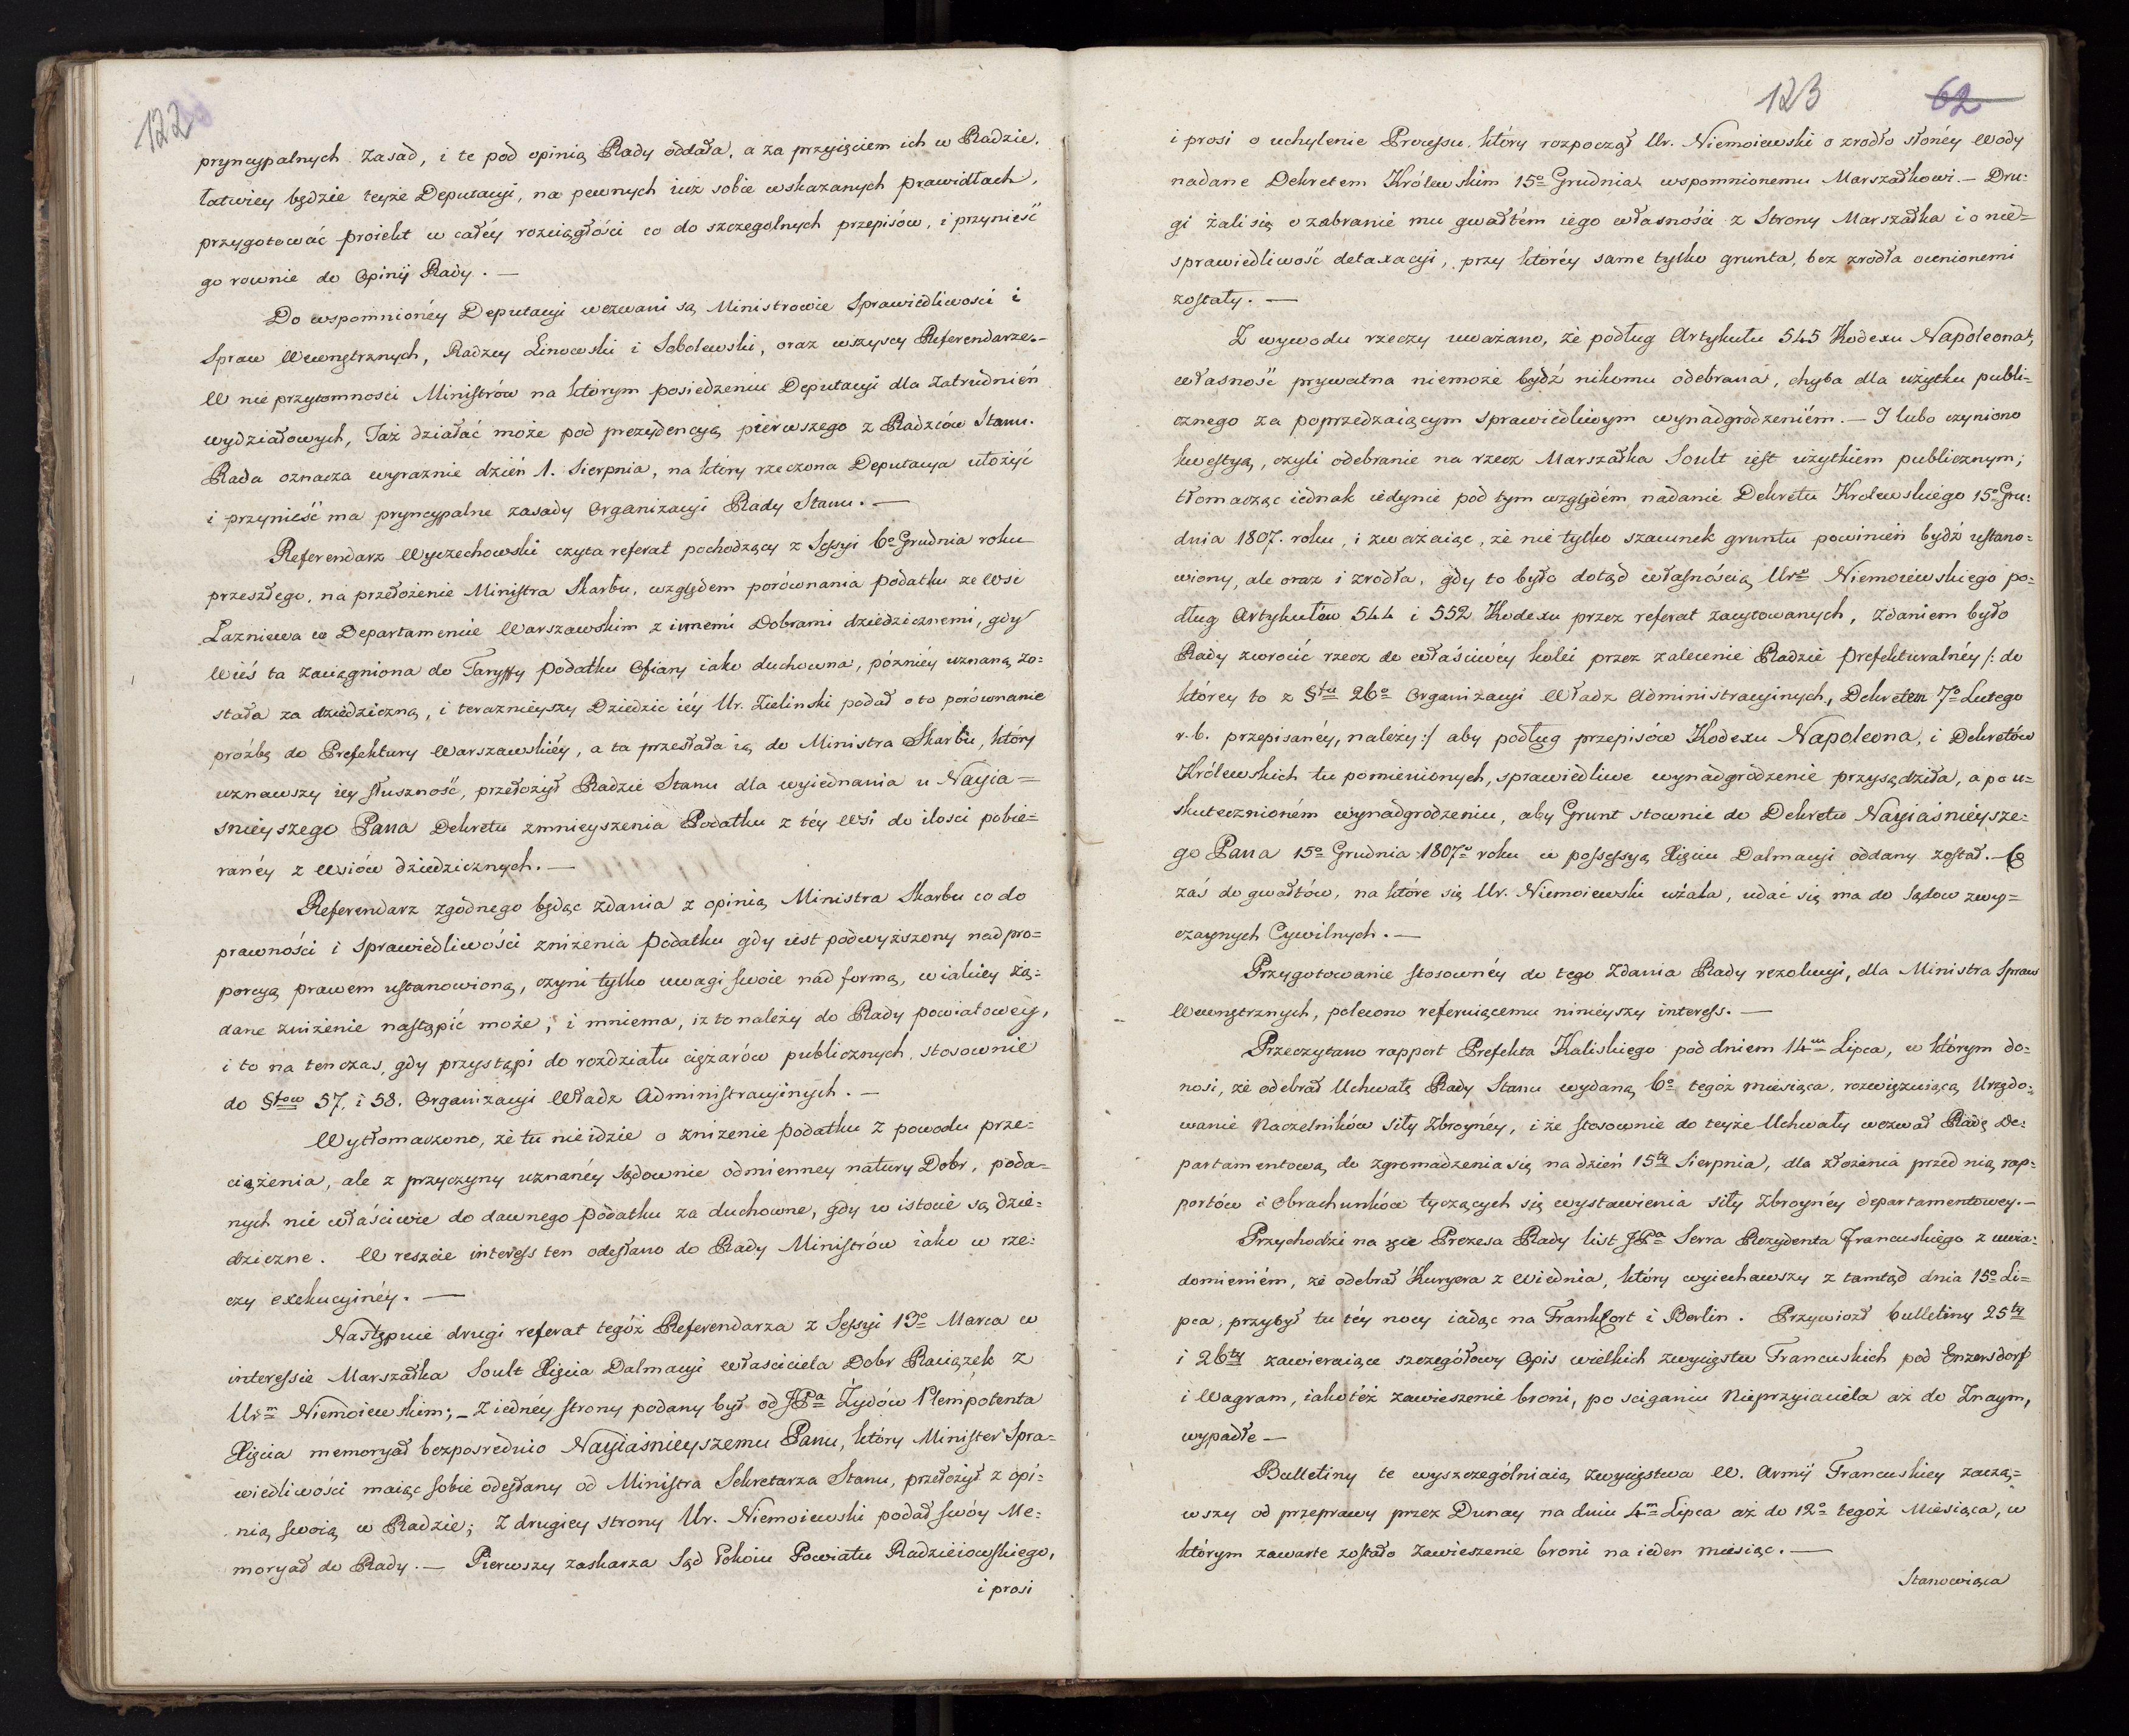 122
pryncypalnych zasad, i te pod opinią Rady oddała, a za przyięciem ich w Radzie,
łatwiey będzie teyże Deputacyi, na pewnych iuż sobie wskazanych prawidłach,
przygotować proiekt w całéy rozciągłości co do szczególnych przepisów, i przynieść
go rownie do Opinij Rady. —
Do wspomnionéy Deputacyi wezwani są Ministrowie Sprawiedliwości i
Spraw Wewnętrznych, Radzcy Linowski i Sobolewski, oraz wszyscy Referendarze.—
W nieprzytomności Ministrów na którym posiedzeniu Deputacyi dla zatrudnień
wydziałowych, Taż działać może pod prezydencyą pierwszego z Radzców Stanu.
Rada oznacza wyraznie dzień 1. Sierpnia, na który rzeczona Deputacya ułożyć
i przynieść ma pryncypalne zasady Organizacyi Rady Stanu. —
Referendarz Wyczechowski czyta referat pochodzący z Sessyi 6o Grudnia roku
przeszłego, na przełożenie Ministra Skarbu, względem porównania podatku ze Wsi
Lazniewa w Departamencie Warszawskim z innemi Dobrami dziedzicznemi, gdy
Wieś ta zaciągniona do Taryffy podatku Ofiary iako duchowna, późniéy uznaną zo=
stała za dziedziczną, i terazniéyszy Dziedzic iéy Ur. Zielinski podał o to porównanie
proźbę do Prefektury Warszawskiéy, a ta przesłała ią do Ministra Skarbu, który
uznawszy iey słuszność, przełożył Radzie Stanu dla wyiednania u Nayia=
śnieyszego Pana Dekretu zmnieyszenia Podatku z téy Wsi do ilości pobie=
ranéy z Wsiów dziedzicznych. —
Referendarz zgodnego będąc zdania z opinią Ministra Skarbu co do
prawności i sprawiedliwości zniżenia podatku gdy iest podwyższony nad pro=
porcyą prawem ustanowioną, czyni tylko uwagi swoie nad formą, w iakiey żą=
dane zniżenie nastąpić może, i mniema, iż to należy do Rady powiatowey,
i to na tenczas, gdy przystąpi do rozdziału ciężarów publicznych, stosownie
do §tow 57. i 58. Organizacyi Władz Administracyinych. —
Wytłomaczono, że tu nie idzie o zniżenie podatku z powodu prze=
ciążenia, ale z przyczyny uznanéy Sądownie odmienney natury Dobr, poda=
nych nie właściwie do dawnego podatku za duchowne, gdy w istocie są dzie=
dziczne. W reszcie interess ten odesłano do Rady Ministrów iako w rze=
czy exekucyinéy. —
Następnie drugi referat tegóż Referendarza z Sessyi 13o Marca w
interessie Marszałka Soult Xięcia Dalmacyi właściciela Dobr Raciążek z
Urm Niemoiewskim; — Z iednéy strony podany był od JPa Żydów Plenipotenta
Xięcia memoryał bezposrednio Nayiaśnieyszemu Panu, który Minister Spra=
wiedliwości maiąc sobie odesłany od Ministra Sekretarza Stanu, przełożył z opi=
nią swoią w Radzie; Z drugiey strony Ur. Niemoiewski podał swóy Me=
moryał do Rady. — Pierwszy zaskarza Sąd Pokoiu Powiatu Radzieiowskiego,
i prosi
123
62
i prosi o uchylenie Processu, który rozpoczął Ur. Niemoiewski o zrodło słonéy Wody
nadane Dekretem Królewskim 15o Grudnia wspomnionemu Marszałkowi. — Dru=
gi żali się o zabranie mu gwałtem iego własności z Strony Marszałka i o nie=
sprawiedliwość detaxacyi, przy któréy same tylko grunta, bez zrodła ocenionemi
zostały. —
Z wywodu rzeczy uważano, że podług Artykułu 545 Kodexu Napoleona,
własność prywatna niemoże bydź nikomu odebraną, chyba dla użytku publi=
cznego za poprzedzaiącym sprawiedliwym wynadgrodzeniém. — I lubo czyniono
kwestyą, czyli odebranie na rzecz Marszałka Soult iest użytkiem publicznym;
tłomacząc iednak iedynie pod tym względém nadanie Dekretu Krolewskiego 15o Gru=
dnia 1807. roku, i zważaiąc, że nie tylko szacunek gruntu powinien bydź ustano=
wiony, ale oraz i zrodła, gdy to było dotąd własnością Uro Niemoiewskiego po=
dług Artykułów 544 i 552 Kodexu przez referat zacytowanych, zdaniem było
Rady zwrocić rzecz do właściwéy kolei przez zalecenie Radzie Prefekturalnéy /: do
którey to z §tu 26o Organizacyi Władz Administracyinych, Dekretem 7o Lutego
r. b. przepisanéy, należy :/ aby podług przepisów Kodexu Napoleona, i Dekretów
Królewskich tu pomienionych, sprawiedliwe wynadgrodzenie przysądziła, a po u=
skutecznioném wynadgrodzeniu, aby Grunt stownie do Dekretu Nayiaśnieysze=
go Pana 15o Grudnia 1807o roku w possessyą Xięciu Dalmacyi oddany został. — Co
zaś do gwałtów, na które się Ur. Niemoiewski użala, udać się ma do Sądow zwy=
czaynych Cywilnych. —
Przygotowanie stosownéy do tego Zdania Rady rezolucyi, dla Ministra Spraw
Wewnętrznych, polecono referuiącemu ninieyszy interess. —
Przeczytano rapport Prefekta Kaliskiego pod dniem 14m Lipca, w którym do=
nosi, że odebrał Uchwałę Rady Stanu wydaną 6o tegoż miesiąca, rozwięzuiącą Urzędo=
wanie Naczelników siły Zbroynéy, i że stosownie do teyże Uchwały wezwał Radę De=
partamentową do zgromadzenia się na dzień 15ty Sierpnia, dla złożenia przed nią rap=
portów i Obrachunków tyczących się wystawienia siły Zbroynéy departamentowey. —
Przychodzi na ręce Prezesa Rady list JPa Serra Rezydenta Francuskiego z uwia=
domieniém, że odebrał Kuryera z Wiednia, który wyiechawszy z tamtąd dnia 15o Li=
pca, przybył tu téy nocy iadąc na Frankfort i Berlin. Przywiozł bulletiny 25ty
i 26ty zawieraiące szczegółowy Opis wielkich zwycięstw Francuskich pod Enzersdorf
i Wagram, iakotéż zawieszenie broni, po sciganiu Nieprzyiaciela aż do Znaym,
wypadłe —
Bulletiny te wyszczególniaią zwycięstwa W. Armij Francuskiey zaczą=
wszy od przeprawy przez Dunay na dniu 4m Lipca aż do 12o tegoż Miesiąca, w
którym zawarte zostało Zawieszenie broni na ieden miesiąc. —
Stanowiąca